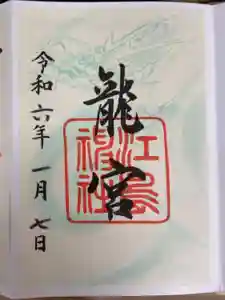 龍宮
江島神社
令和六年一月七日